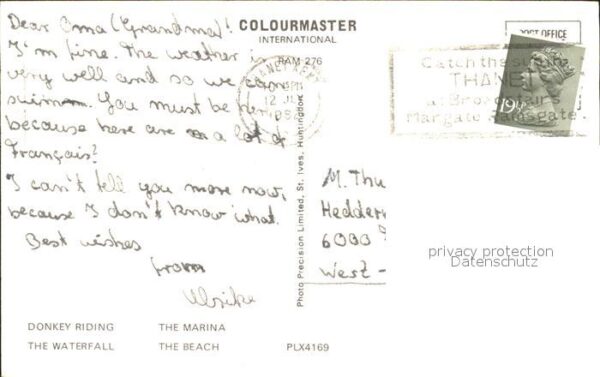 Dear Oma (Grandma)!
I'm fine. The weather is
very well and so we can
swimm. You must be here
because here are a lot of
Français!
I can't tell you more now,
because I don't know what.
Best wishes
from
Ulrike
COLOURMASTER
INTERNATIONAL
RAM 276
Photo Precision Limited, St. Ives, Huntingdon
THANET KENT
12 JLY
POST OFFICE
Catch the sun in
THANET
at Broadstairs
Margate Ramsgate
19½
M. Thu
Hedder
6000
West-
privacy protection
Datenschutz
DONKEY RIDING THE MARINA
THE WATERFALL THE BEACH PLX4169